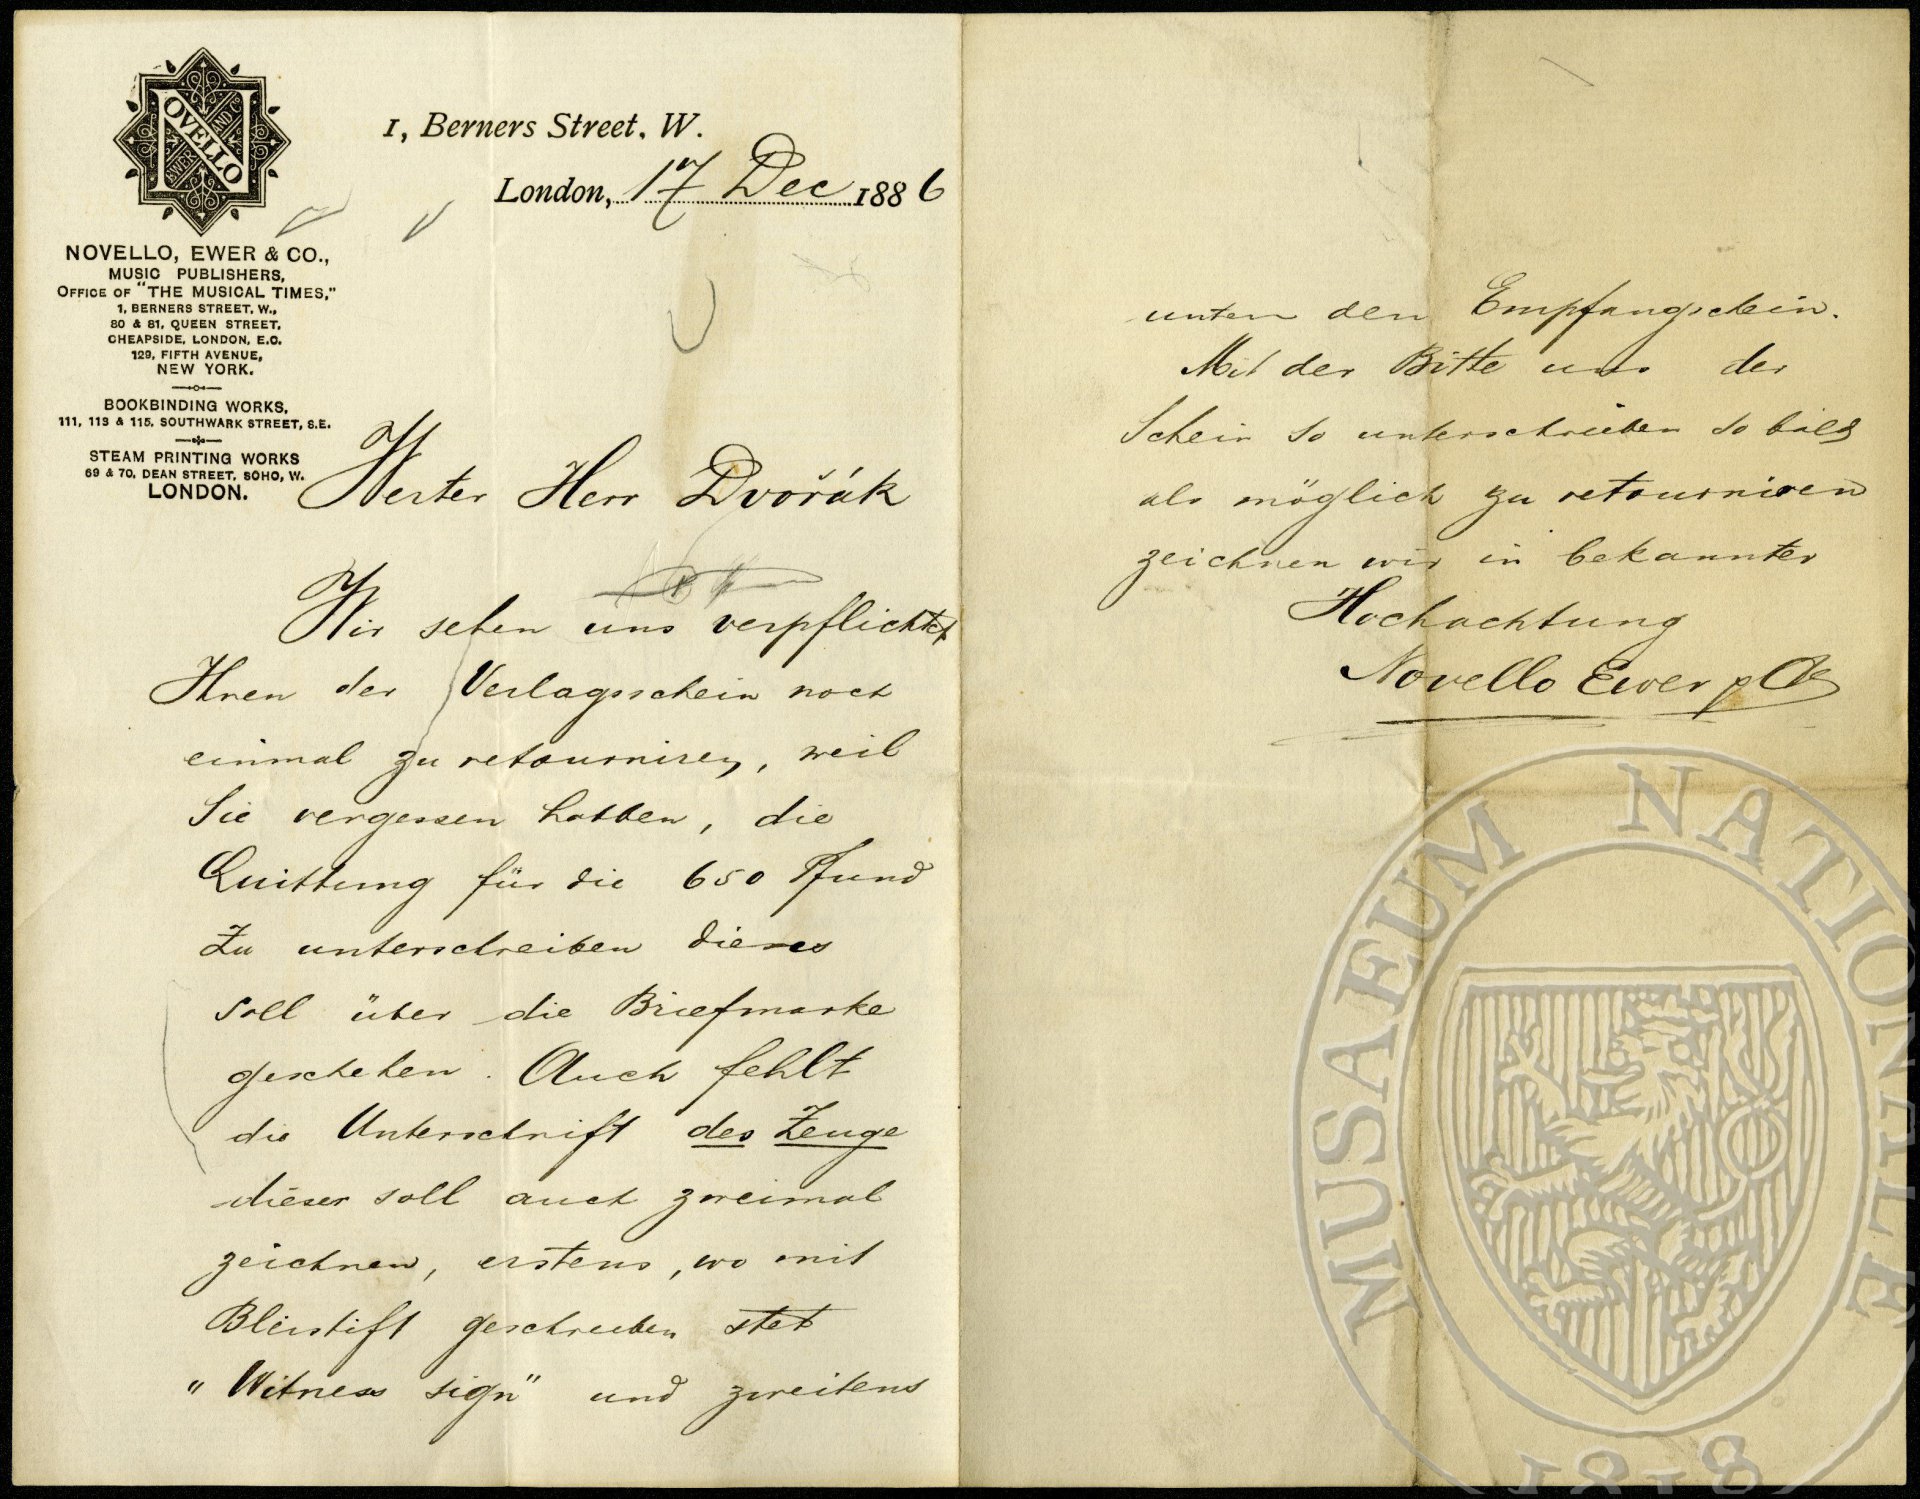 NOVELLO
AND Co
EWER
NOVELLO, EWER & CO.,
MUSIC PUBLISHERS,
OFFICE OF "THE MUSICAL TIMES,"
1, BERNERS STREET, W.,
80 & 81, QUEEN STREET,
CHEAPSIDE, LONDON, E.C.
129, FIFTH AVENUE,
NEW YORK.
BOOKBINDING WORKS,
111, 113 & 115, SOUTHWARK STREET, S.E.
STEAM PRINTING WORKS
69 & 70, DEAN STREET, SOHO, W.
LONDON.
1, Berners Street, W.
London, 17 Dec 1886
Werter Herr Dvořák
Wir sehen uns verpflichtet
Ihnen der Verlagsschein noch
einmal zu retourniren, weil
Sie vergessen hatben, die
Quittung für die 650 Pfund
Zu unterschreiben dieses
soll über die Briefmarke
geschehen. Auch fehlt
die Unterschrift des Zeuge
dieser soll auch zweimal
zeichnen, erstens, wo mit
Bleistift geschrieben stet
"Witness sign" und zweitens
unten den Empfangschein.
Mit der Bitte uns der
Schein so unterschrieben so bald
als möglich zu retourniren
zeichnen wir in bekannter
Hochachtung
Novello Ewer & Co
MUSAEUM NATIONALE
1818